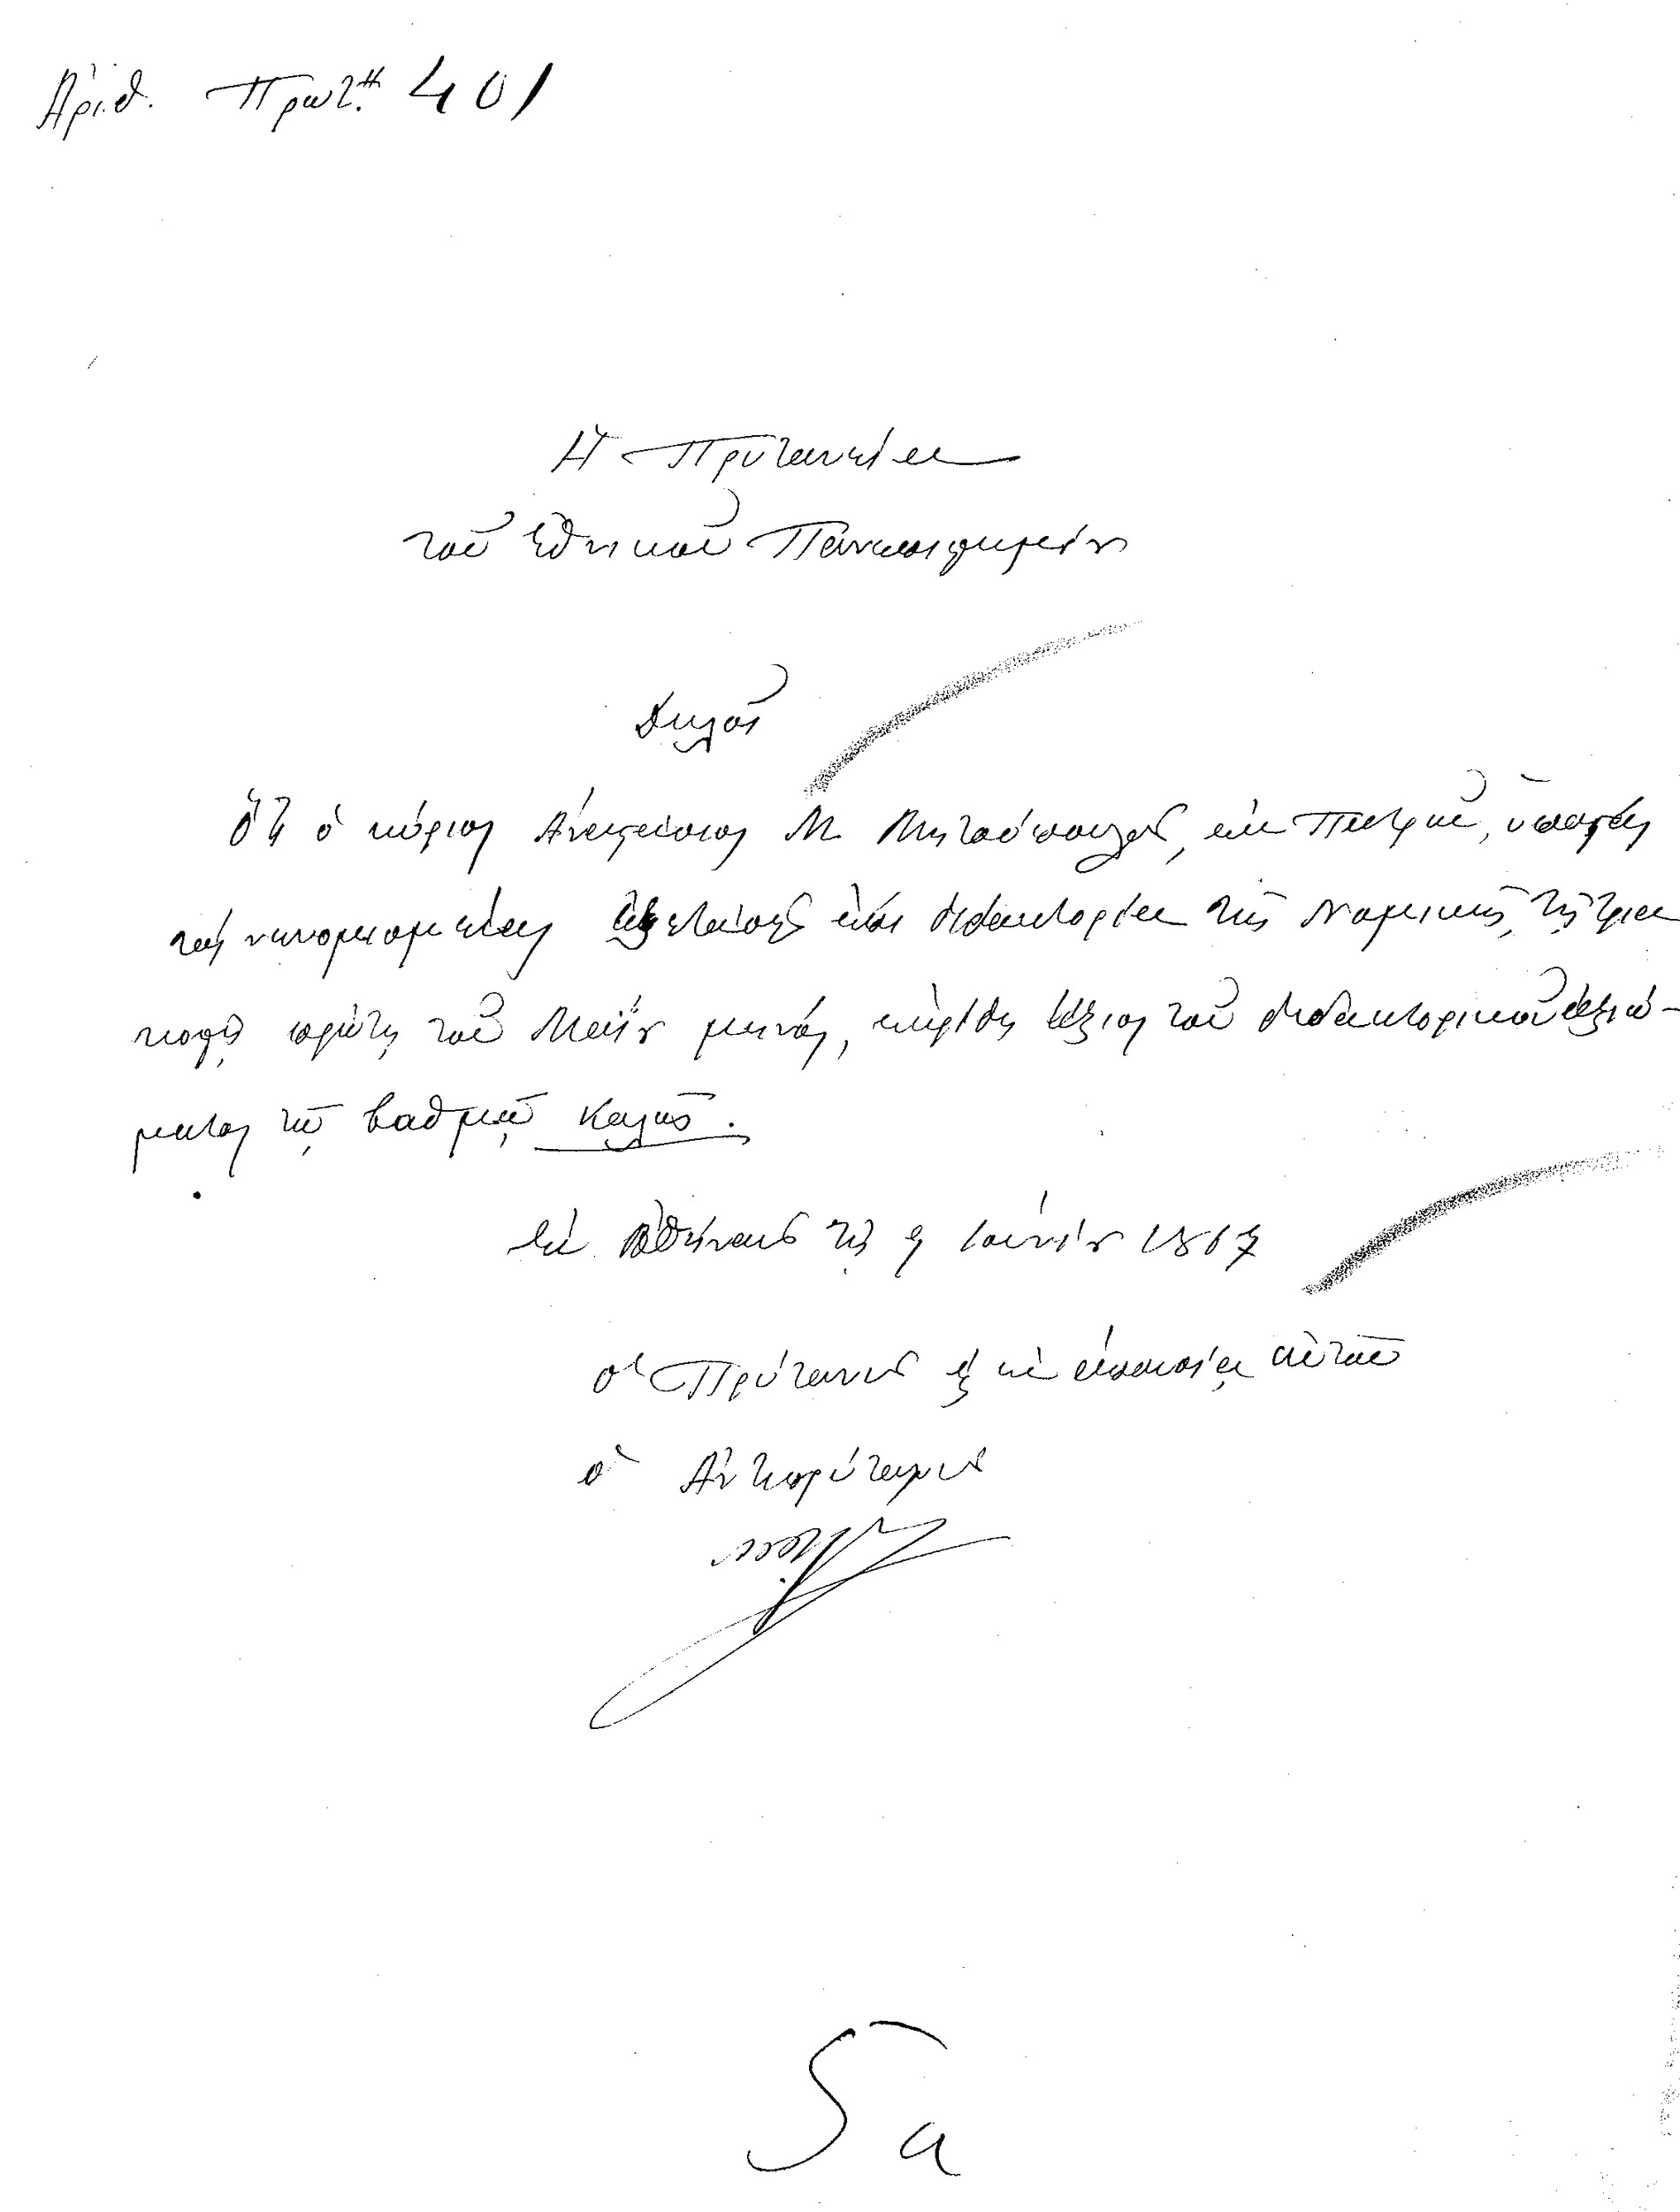 Ἀριθ. Πρωτ. 401
Ἡ Πρυτανεία
τοῦ Ἐθνικοῦ Πανεπιστημίου
Δηλοῖ
ὅτι ὁ κύριος Ἀναστάσιος Μ. Μητσόπουλος, ἐκ Πατρῶν, ὑποστὰς
τὰς νενομισμένας ἐξετάσεις ἐπὶ διδακτορίᾳ τῆς Νομικῆς, τῇ τρια
κοστῇ πρώτῃ τοῦ Μαΐου μηνός, ἐκρίθη ἄξιος τοῦ διδακτορικοῦ ἀξιώ-
ματος τῷ βαθμῷ Καλῶς.
Ἐν Ἀθήναις τῇ 9 Ἰουνίου 1867
ὁ Πρύτανις ἐν ἀπουσίᾳ αὐτοῦ
ὁ Ἀντιπρύτανις
5a